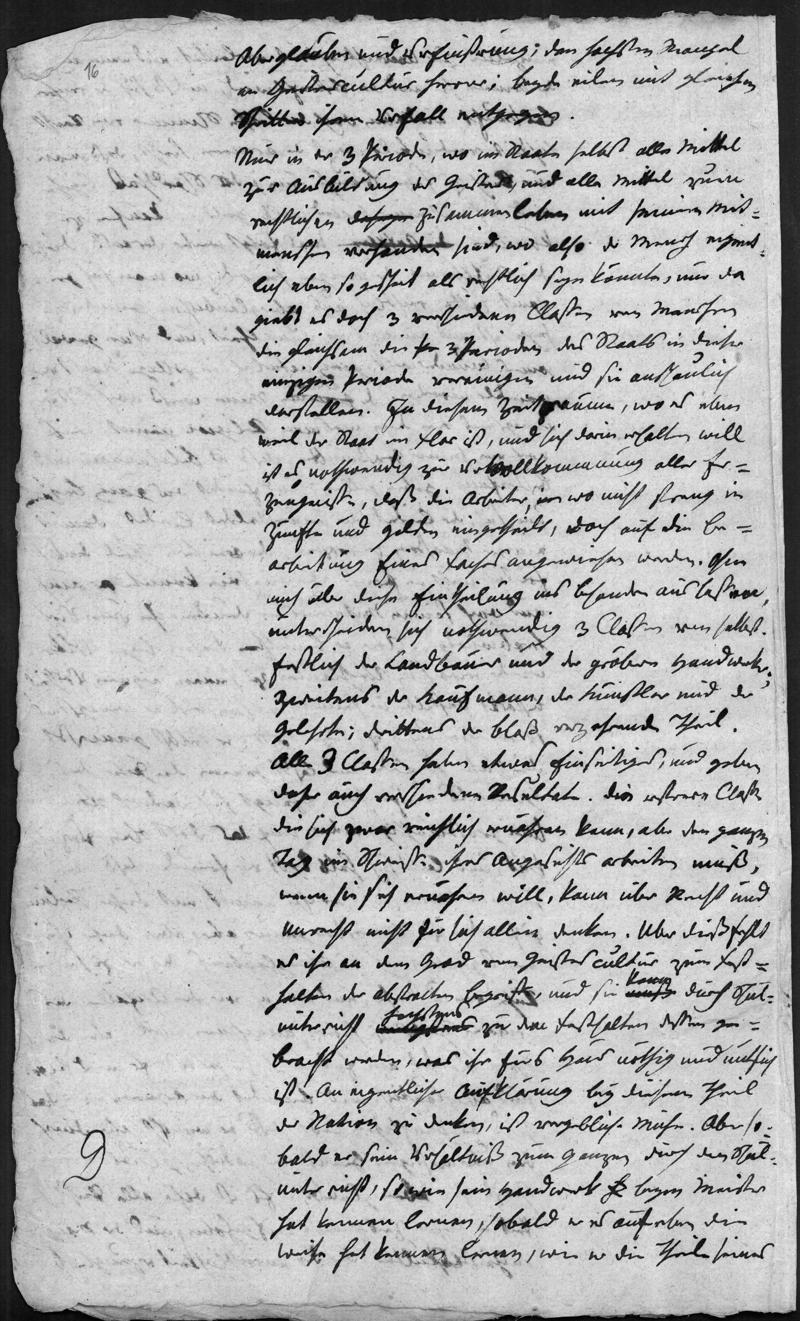 16
Aberglauben und Verführung; den höchsten Mangel
an Geistescultur hervor; beyde eilen mit gleichen
Schritten ihrem Verfall entgegen.
Nur in der 3 Periode, wo im Staate selbst alle Mittel
zur Ausbildung des Geistes, und alle Mittel zum
rechtlichen Zusammenleben mit seinen Mit-
menschen vorhanden sind, wo also der Mensch eigent-
lich eben so gescheit als rechtlich seyn könnte, nur da
giebt es doch 3 verschiedene Classen von Menschen
die gleichsam die 3 Perioden des Staats in dieser
einzigen Periode vereinigen und sie anschaulich
darstellen. In diesem Zeitraume, wo es eben
weil der Staat im Flor ist, und sich darin erhalten will
ist es nothwendig zur Vervollkommnung aller Er-
zeugnisse, daß die Arbeiter, wo nicht streng in
Zünfte und Gilden eingetheilt, doch auf die Be-
arbeitung eines Faches angewiesen werden. Ohne
mich über diese Eintheilung ins besondere auslassen,
unterscheiden sich nothwendig 3 Classen von selbst.
Erstlich der Landbauer und der gröbere Handwerker;
zweitens der Kaufmann, der Künstler und der
Gelehrte; drittens der blos verzehrende Theil.
Alle 3 Classen haben etwas Einseitiges, und geben
daher auch verschiedene Resultate. Die erstere Classe
die sich zwar reichlich ernähren kann, aber den ganzen
Tag im Schweiße ihres Angesichts arbeiten muß,
wenn sie sich ernähren will, kann über Recht und
Unrecht nicht für sich allein denken. Ueber dieß fehlt
es ihr an dem Grad von Geistescultur zum Fest-
halten der abstracten Begriffe, und sie kann durch Schul-
unterricht höchstens zu dem Festhalten dessen ge-
bracht werden, was ihr fürs Haus nöthig und nützlich
ist. An eigentliche Aufklärung bey diesem Theil
der Nation zu denken, ist vergebliche Mühe. Aber so-
bald er sein Verhältniß zum Ganzen durch den Schul-
unterricht, so wie sein Handwerk beym Meister
hat kennen lernen, sobald er es auf eben die
Weise hat kennen lernen, wie er die Theile seines
D